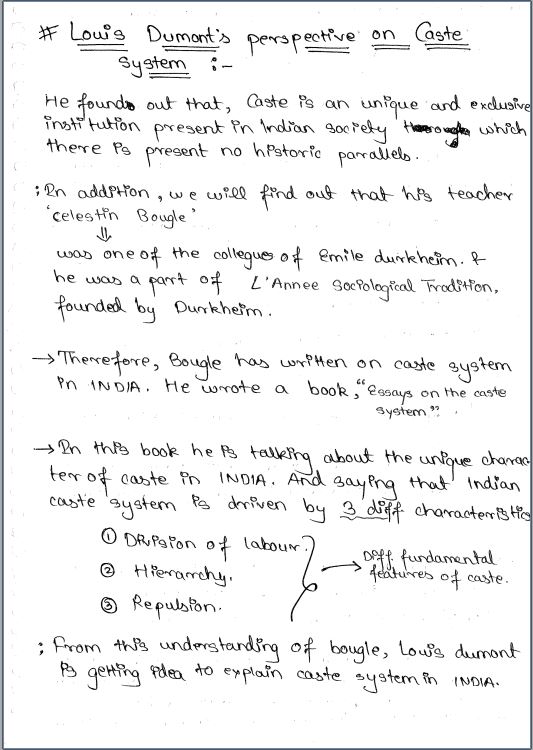 # Louis Dumont's perspective on Caste
system :-
He found out that, Caste is an unique and exclusive
institution present in Indian society which
there is present no historic parallels.
; In addition, we will find out that his teacher
'celestin Bougle'
⇓
was one of the collegues of Emile durkheim. &
he was a part of L'Annee Sociological Tradition,
founded by Durkheim.
→ Therefore, Bougle has written on caste system
in INDIA. He wrote a book, "Essays on the caste
system".
→ In this book he is talking about the unique charac
ter of caste in INDIA. And saying that Indian
caste system is driven by 3 diff characteristics
① Division of labour.
② Hierarchy.
③ Repulsion.
→ Diff. fundamental
features of caste.
; From this understanding of bougle, Louis dumont
is getting idea to explain caste system in INDIA.